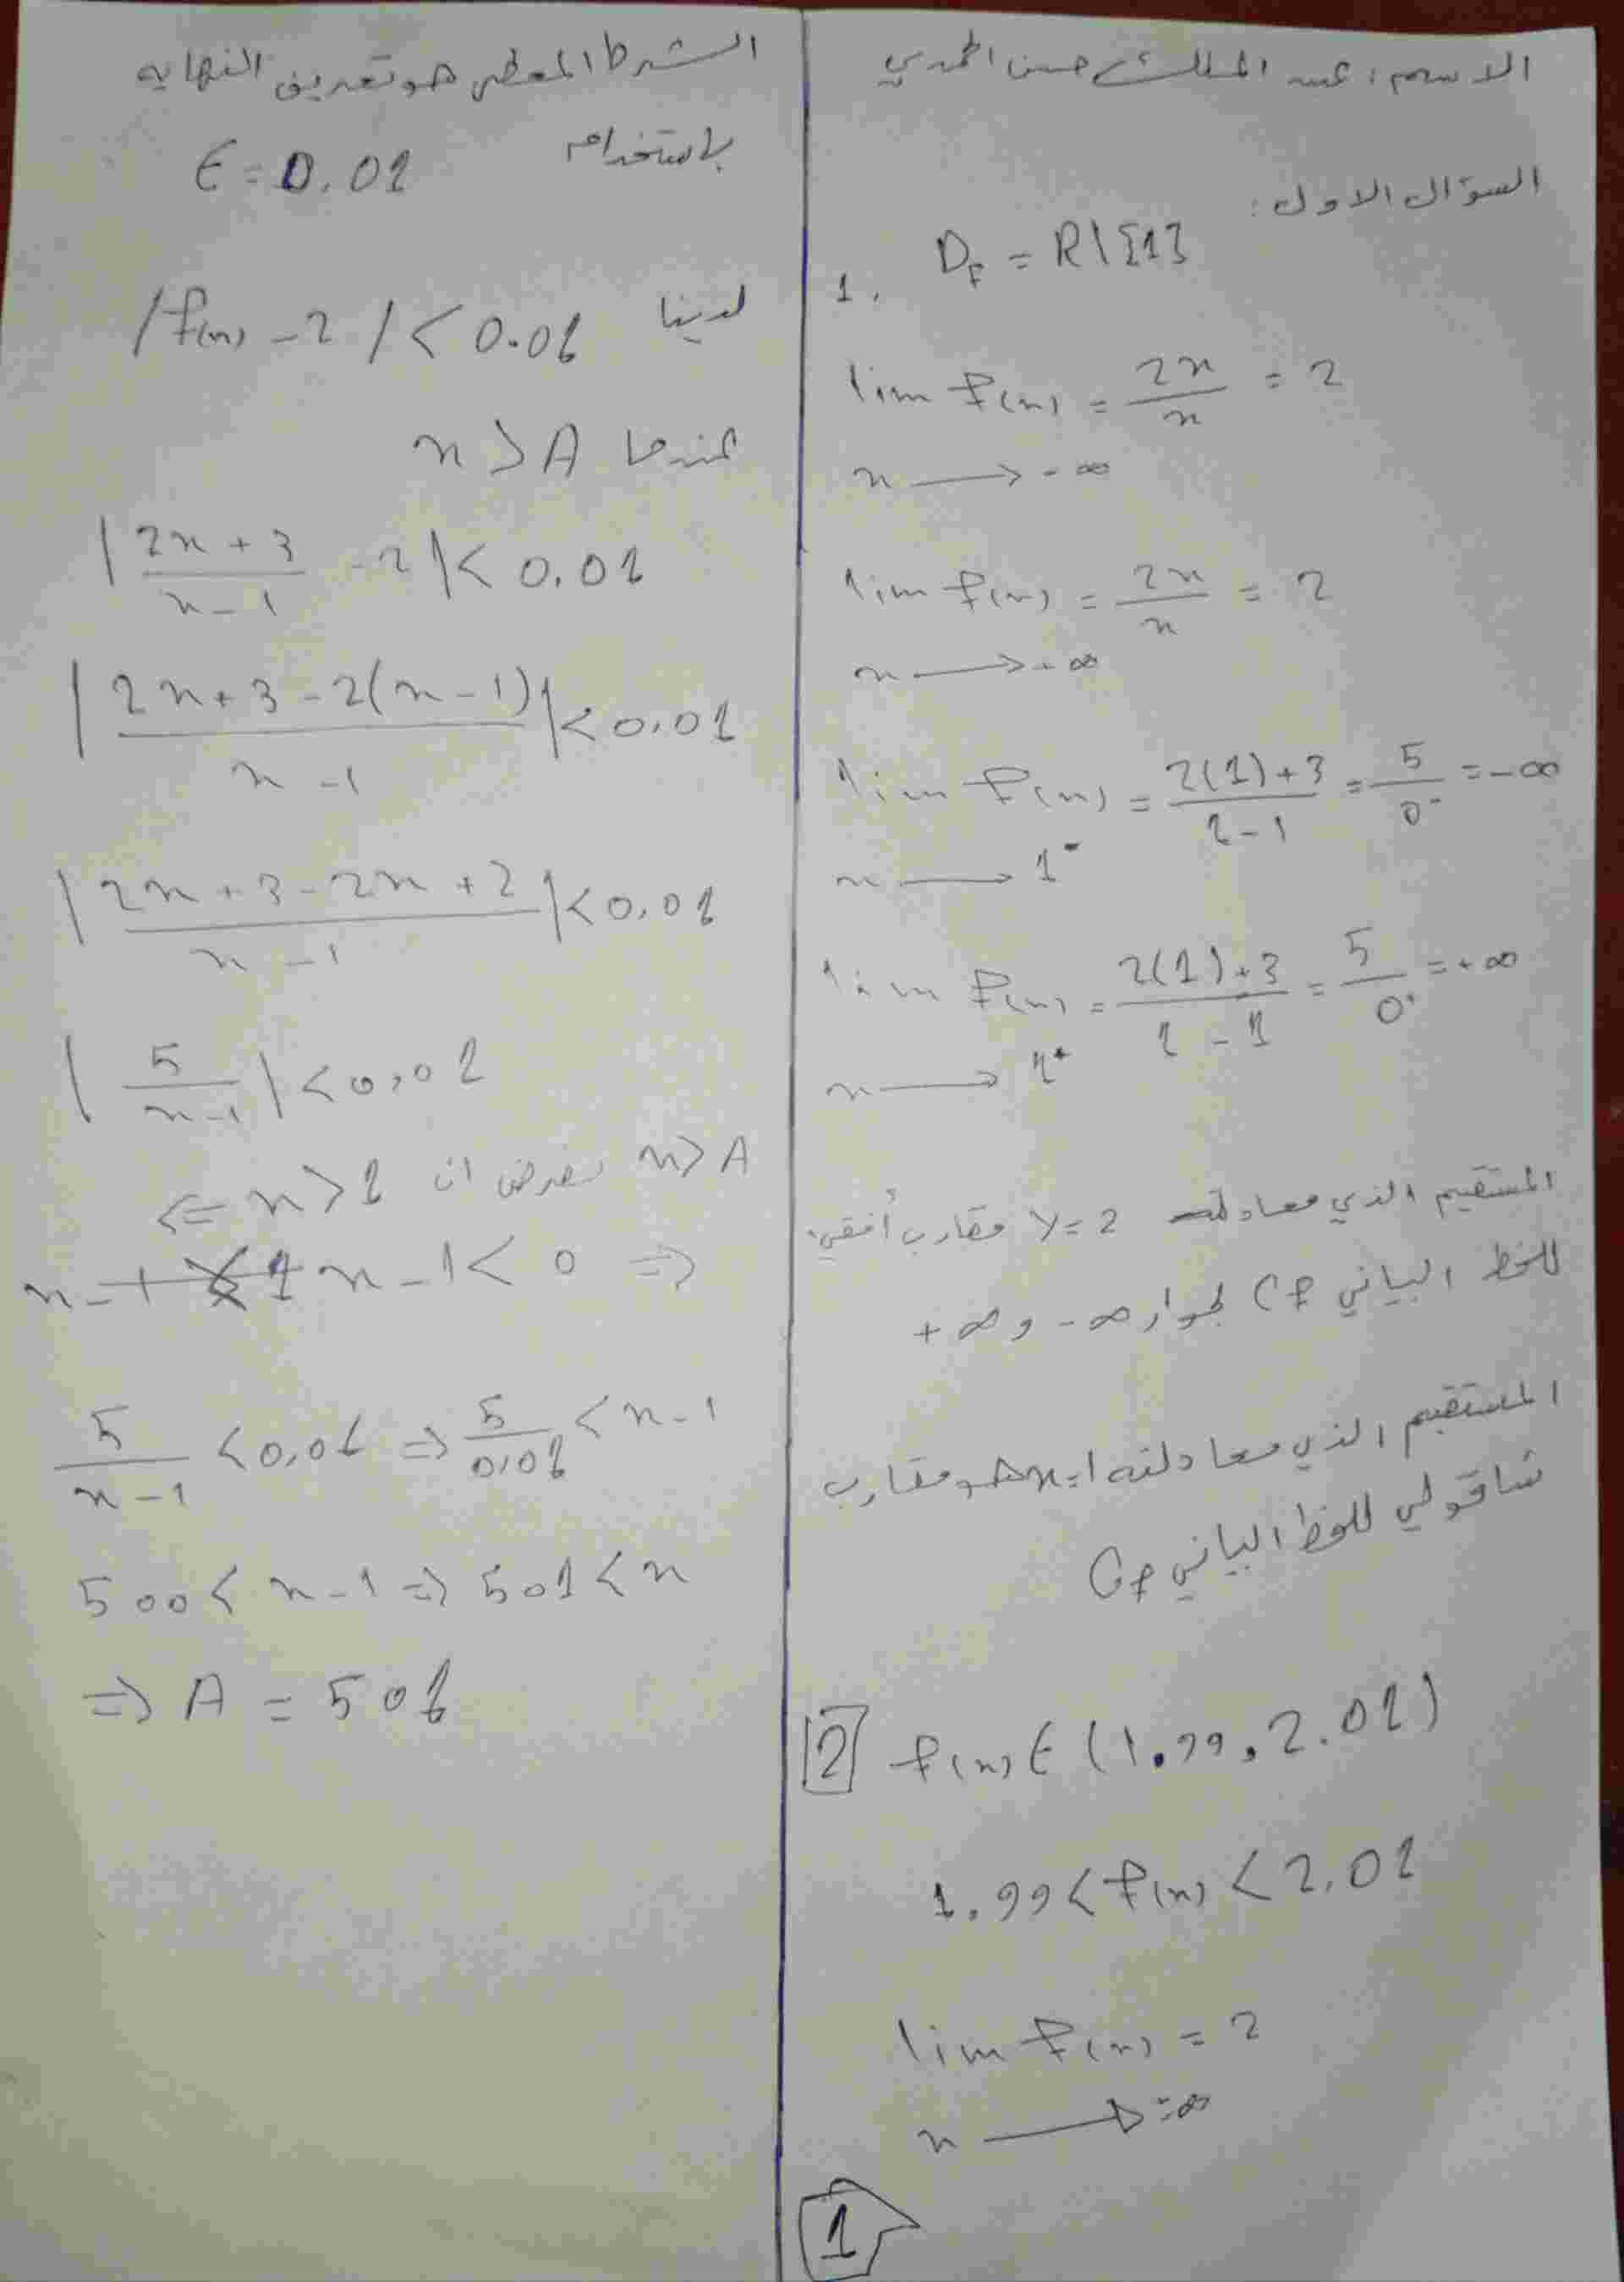 الاسم: عبد الملك حسن المحمدي
السؤال الاول:
1. D_f = R\{1}
lim f(x) = 2x/x = 2
x → -∞
lim f(x) = 2x/x = 2
x → +∞
lim f(x) = 2(1)+3/1-1 = 5/0⁻ = -∞
x → 1⁻
lim f(x) = 2(1)+3/1-1 = 5/0⁺ = +∞
x → 1⁺
المستقيم الذي معادلته y=2 مقارب أفقي
للخط البياني Cf بجوار ∞- و ∞+
المستقيم الذي معادلته x=1 هو مقارب
شاقولي للخط البياني Cf
2 f(x) ∈ (1.99, 2.01)
1.99 < f(x) < 2.01
lim f(x) = 2
x → +∞
1
الشرط المعطى هو تعريف النهاية
باستخدام ϵ = 0.01
لدينا |f(x) - 2| < 0.01
عندما x > A
|2x+3/x-1 - 2| < 0.01
|2x+3-2(x-1)/x-1| < 0.01
|2x+3-2x+2/x-1| < 0.01
|5/x-1| < 0.01
x > A نفرض ان x > 1 ⇐
x-1 < 0 ⇒
5/x-1 < 0,01 ⇒ 5/0,01 < x-1
500 < x-1 ⇒ 501 < x
⇒ A = 501